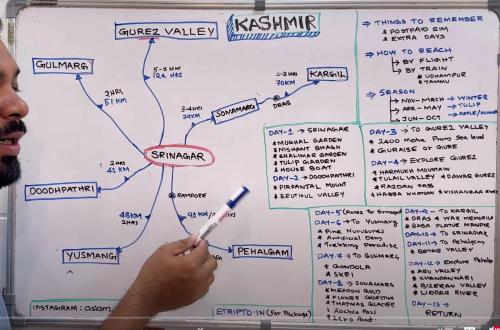 KASHMIR
GUREZ VALLEY
GULMARG
2HRS
51 KM
KARGIL
70KM
SONAMARG
DRAS
3-4HRS
SRINAGAR
2HRS
DOODHPATHRI
48KM
2HRS
YUSMANG
PEHALGAM
INSTAGRAM:
ETRIPTO.IN (For Package)
⇒ THINGS TO REMEMBER
* POSTPAID SIM
* EXTRA DAYS
⇒ HOW TO REACH
↳ BY FLIGHT
↳ BY TRAIN
* UDHAMPUR
* JAMMU
⇒ SEASON
NOV-MRCH → WINTER
APR-MAY → TULIP
JUN-OCT →
DAY-1 → SRINAGAR
* MUGHAL GARDEN
* NISHANT BHAGH
* SHALIMAR GARDEN
* TULIP GARDEN
* HOUSE BOAT
DAY-2 → DOODHPATHRI
* PIRPANTAL MOUNT
* BEUTIFUL VALLEY
DAY-3 → TO GUREZ VALLEY
* 2400 Metre From Sea level
* GURAISE OF GURE
DAY-4 → EXPLORE GUREZ
* HARMUKH MOUNTAIN
* TULAIL VALLEY * DAWAR GUREZ
* RAZDAN PASS
* HABBA KHATOON
DAY-5
DAY-6 → To YUSMARG
* Pine Nurusures
* Artificial Dam
* Trekking Paradise
DAY-7 → To GULMARG
* GONDOLA
* SKEI
DAY-8 → SONAMARG
* MEADOW GOLD
* FLOWER
* THAJIWAS GLACIER
* Zero Point
DAY-9 → TO KARGIL
* DRAS * WAR MEMORIAL
DAY-10 → TO SRINAGAR
DAY-11 → To Pehalgam
* BETAB VALLEY
DAY-12 → Explore
* ARU VALLEY
* CHANDANWARI
* LIDDAR RIVER
DAY-13 →
RETURN